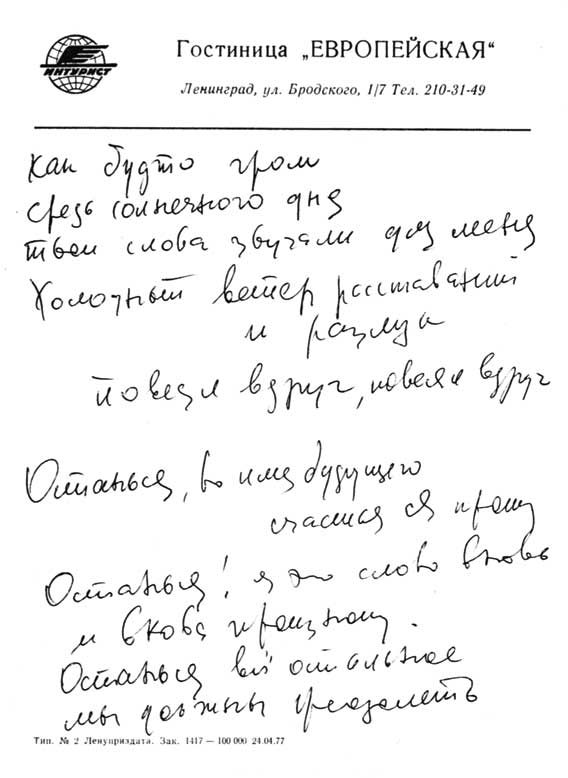 ИНТУРИСТ
Гостиница „ЕВРОПЕЙСКАЯ“
Ленинград, ул. Бродского, 1/7 Тел. 210-31-49
Как будто гром
средь солнечного дня
твои слова звучали для меня
Холодный ветер расставаний
и разлук
повеял вдруг, повеял вдруг
Останься, во имя будущего
счастья я прошу
Останься! я это слово вновь
и вновь произношу.
Останься всё остальное
мы должны преодолеть
Тип. № 2 Ленуприздата. Зак. 1417 — 100 000 24.04.77